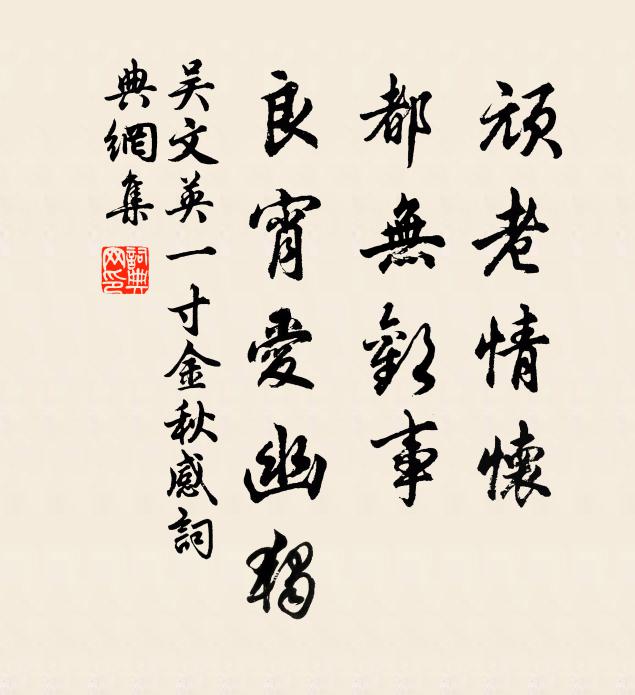 頑老情懷
都無歡事
良宵愛幽獨
吳文英一寸金秋感詞
典網集
詞典網印